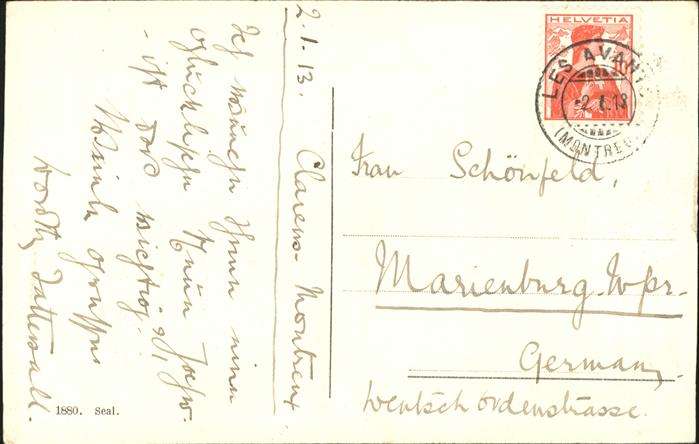 2.1.13. Clarens-Montreux
Ich wünsche Ihnen einen
glücklichen Neuen Jahr
- ist das richtig?
Viele Grüsse
Tattersall.
HELVETIA
LES AVANTS
-2.1.13
(MONTREUX)
Frau Schönfeld,
Marienburg. Wpr.
Germany
Deutsch Ordenstrasse.
1880. Seal.